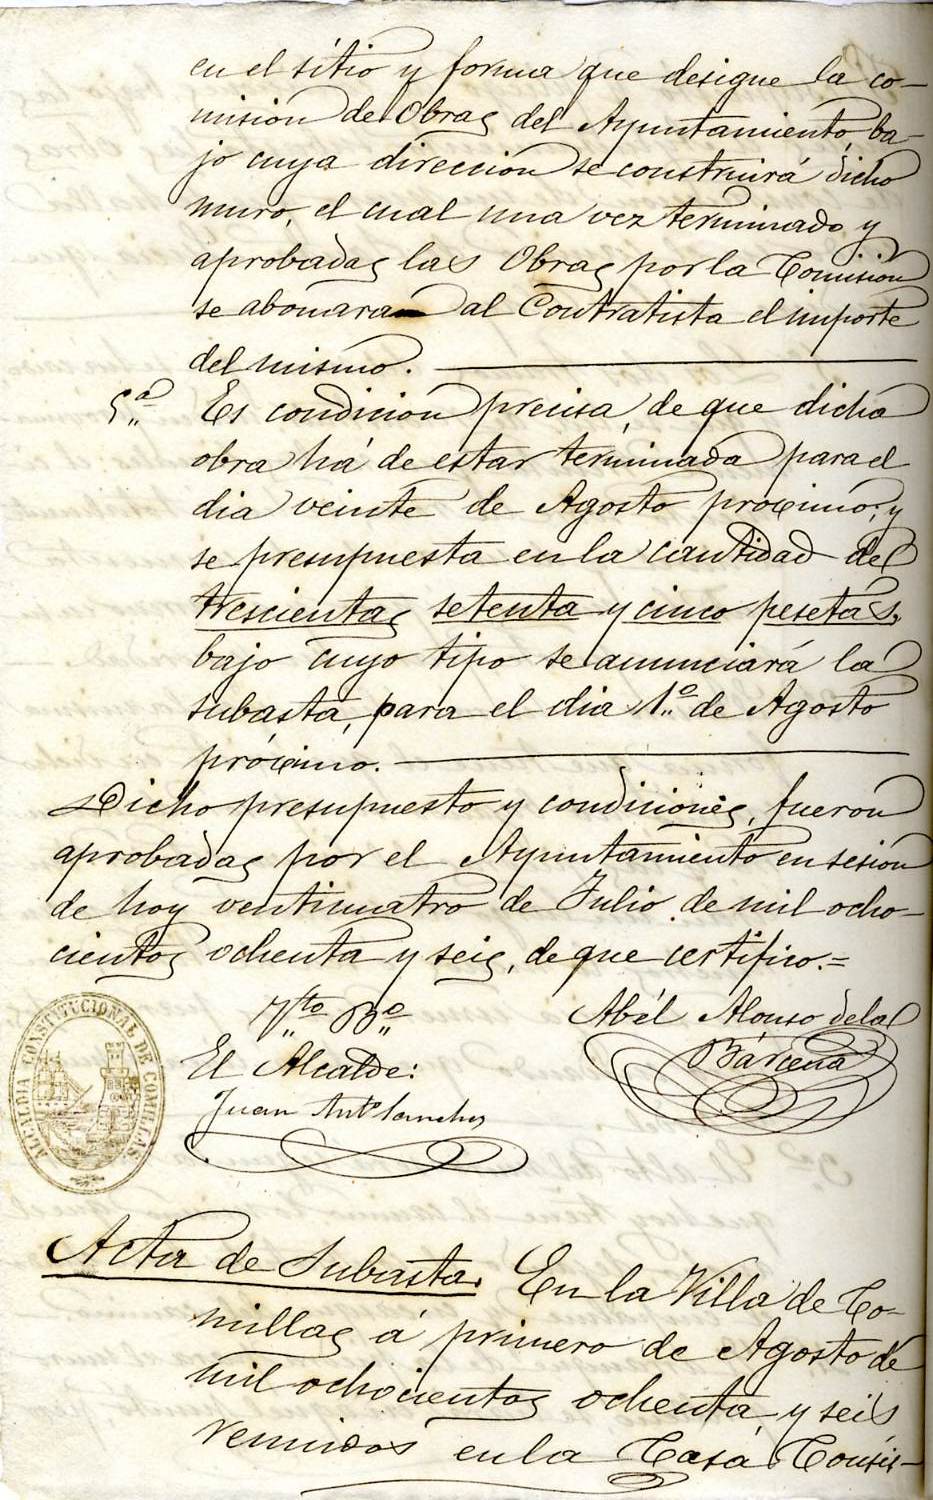 en el sitio y forma que desigue la co-
mision de Obras del Ayuntamiento, ba-
jo cuya direccion se construirá dicho
muro, el cual una vez terminado y
aprobadas las Obras por la Comision
se abonaran al Contratista el importe
del mismo.
5.ª Es condicion precisa, de que dicha
obra há de estar terminada para el
dia veinte de Agosto proximo; y
se presupuesta en la cantidad de
trescientas setenta y cinco pesetas,
bajo cuyo tipo se anunciará la
subasta, para el dia 1.º de Agosto
próximo.
Dicho presupuesto y condiciones, fueron
aprobadas por el Ayuntamiento en sesion
de hoy venticuatro de Julio de mil ocho-
cientos ochenta y seis, de que certifico.=
Vto Bo
Abél Alonso de la
Bárcena
El Alcalde:
Juan Anto Sanchez
ALCALDIA CONSTITUCIONAL DE COMILLAS
Acta de Subasta. En la Villa de Co-
millas á primero de Agosto de
mil ochocientos ochenta y seis
reunidos en la Casa Consis-